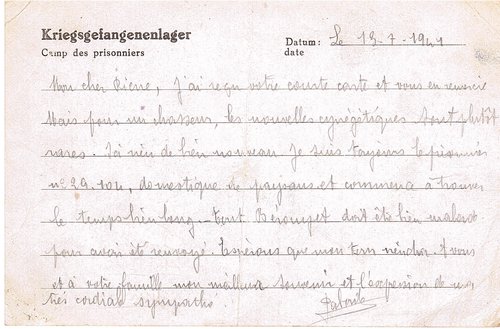 Kriegsgefangenenlager
Camp des prisonniers
Datum: Le 13-7-1941
date
Mon cher Pierre, j'ai reçu votre courte carte et vous en remercie
Mais pour un chasseur, les nouvelles cynégétiques sont plutôt
rares. Ici rien de bien nouveau je suis toujours le prisonnier
n° 29.104, domestique de paysans et commence à trouver
le temps bien long. tout doit être bien malade
pour avoir été renvoyé. Espérons que mon tour viendra. A vous
et à votre famille mon meilleur souvenir et l'expression de ma
très cordiale sympathie.